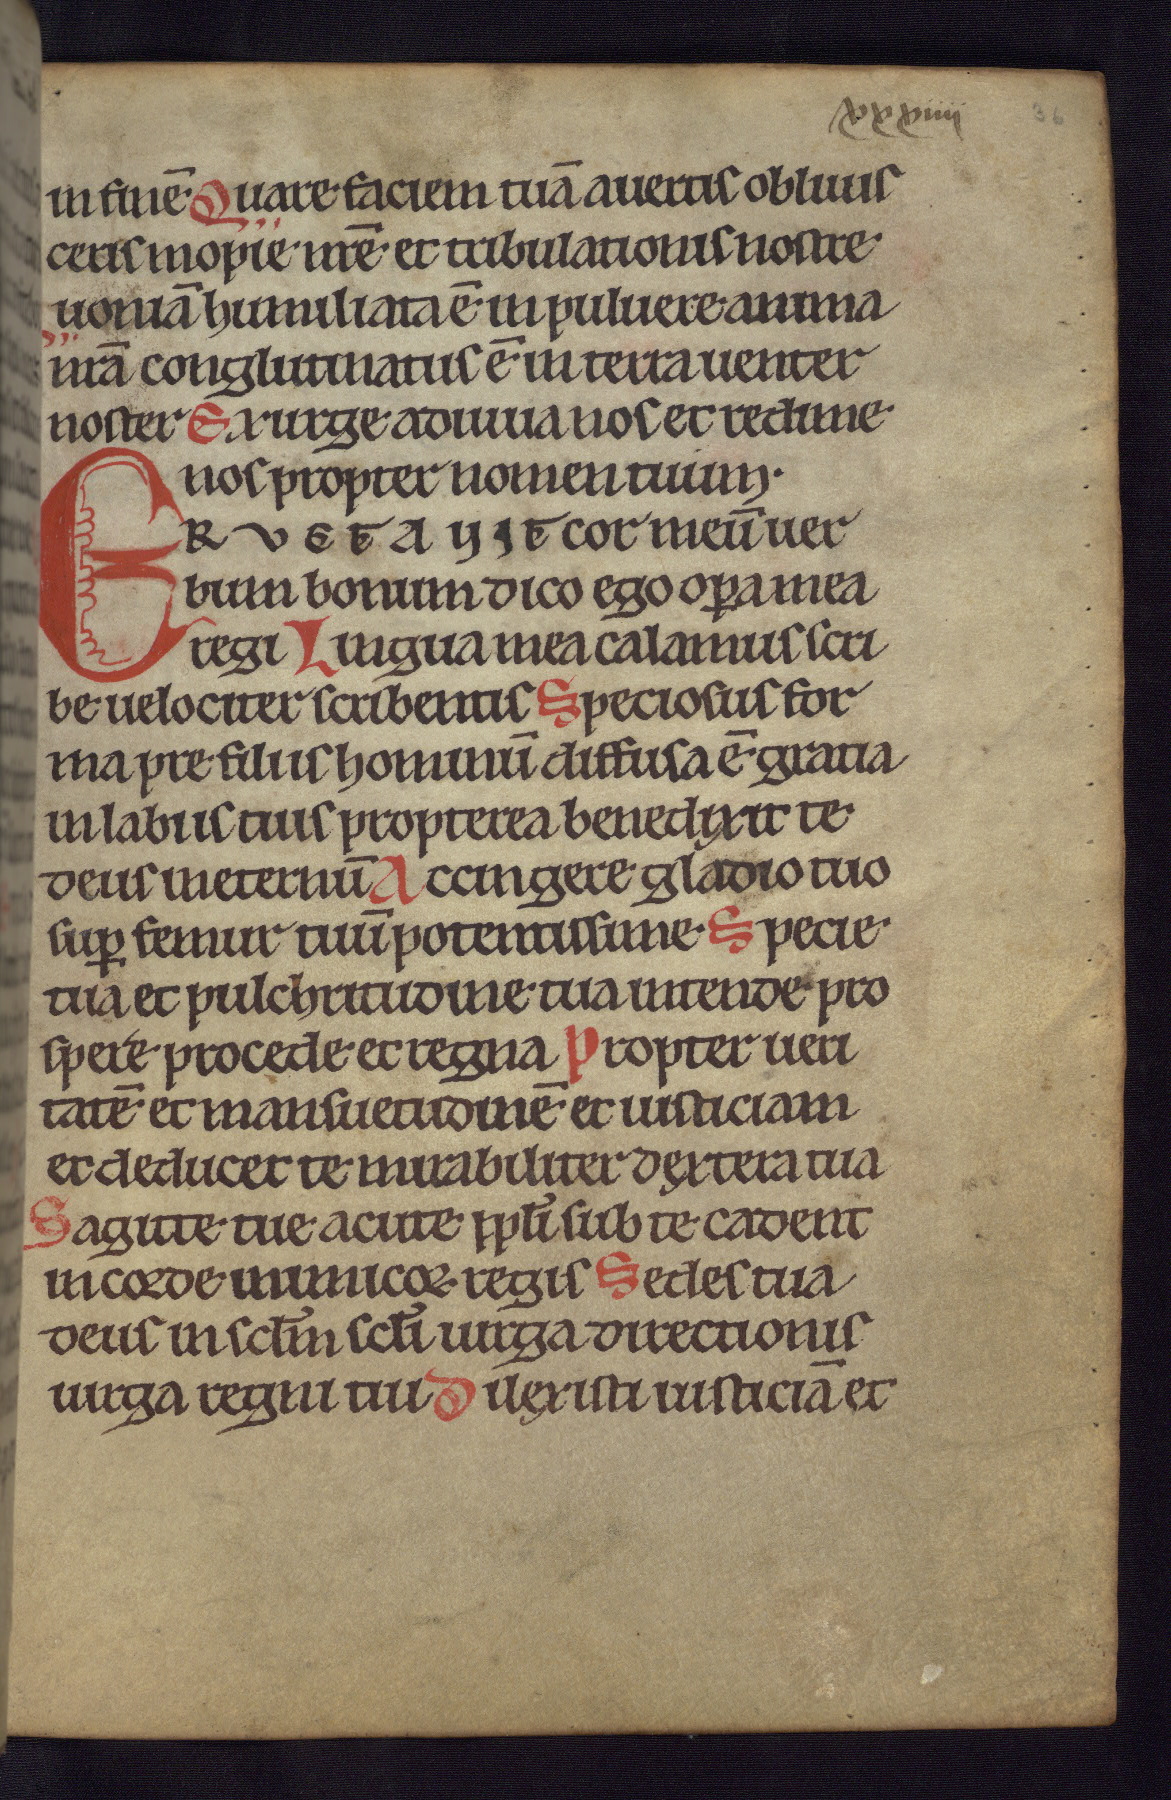 xxxiiii 36
in finē. Quare faciem tuā auertis obliuis
ceris inopie nrē et tribulationis nostre
uoniā humiliata ē in puluere anima
nrā conglutinatus ē in terra uenter
noster Exurge adiuua nos et redime
nos propter nomen tuum.
ERVCTAVIT cor meū uer
bum bonum dico ego oꝑa mea
regi Lingua mea calamus scri
be uelociter scribentis Speciosus for
ma pre filiis hominū diffusa ē gratia
in labiis tuis propterea benedixit te
deus in eternū Accingere gladio tuo
suꝑ femur tuū potentissime Specie
tua et pulchritudine tua intende pro
spere procede et regna Propter ueri
tatē et mansuetudinē et iusticiam
et deducet te mirabiliter dextera tua
Sagitte tue acute ppl̄i sub te cadent
in corde inimicoꝝ regis Sedes tua
deus in sclm̄ scl̄i uirga directionis
uirga regni tui Dilexisti iusticiā et